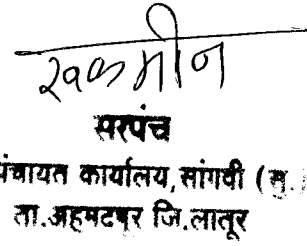 सरपंच
पंचायत कार्यालय, सांगवी (सु.)
ता.अहमदपूर जि.लातूर